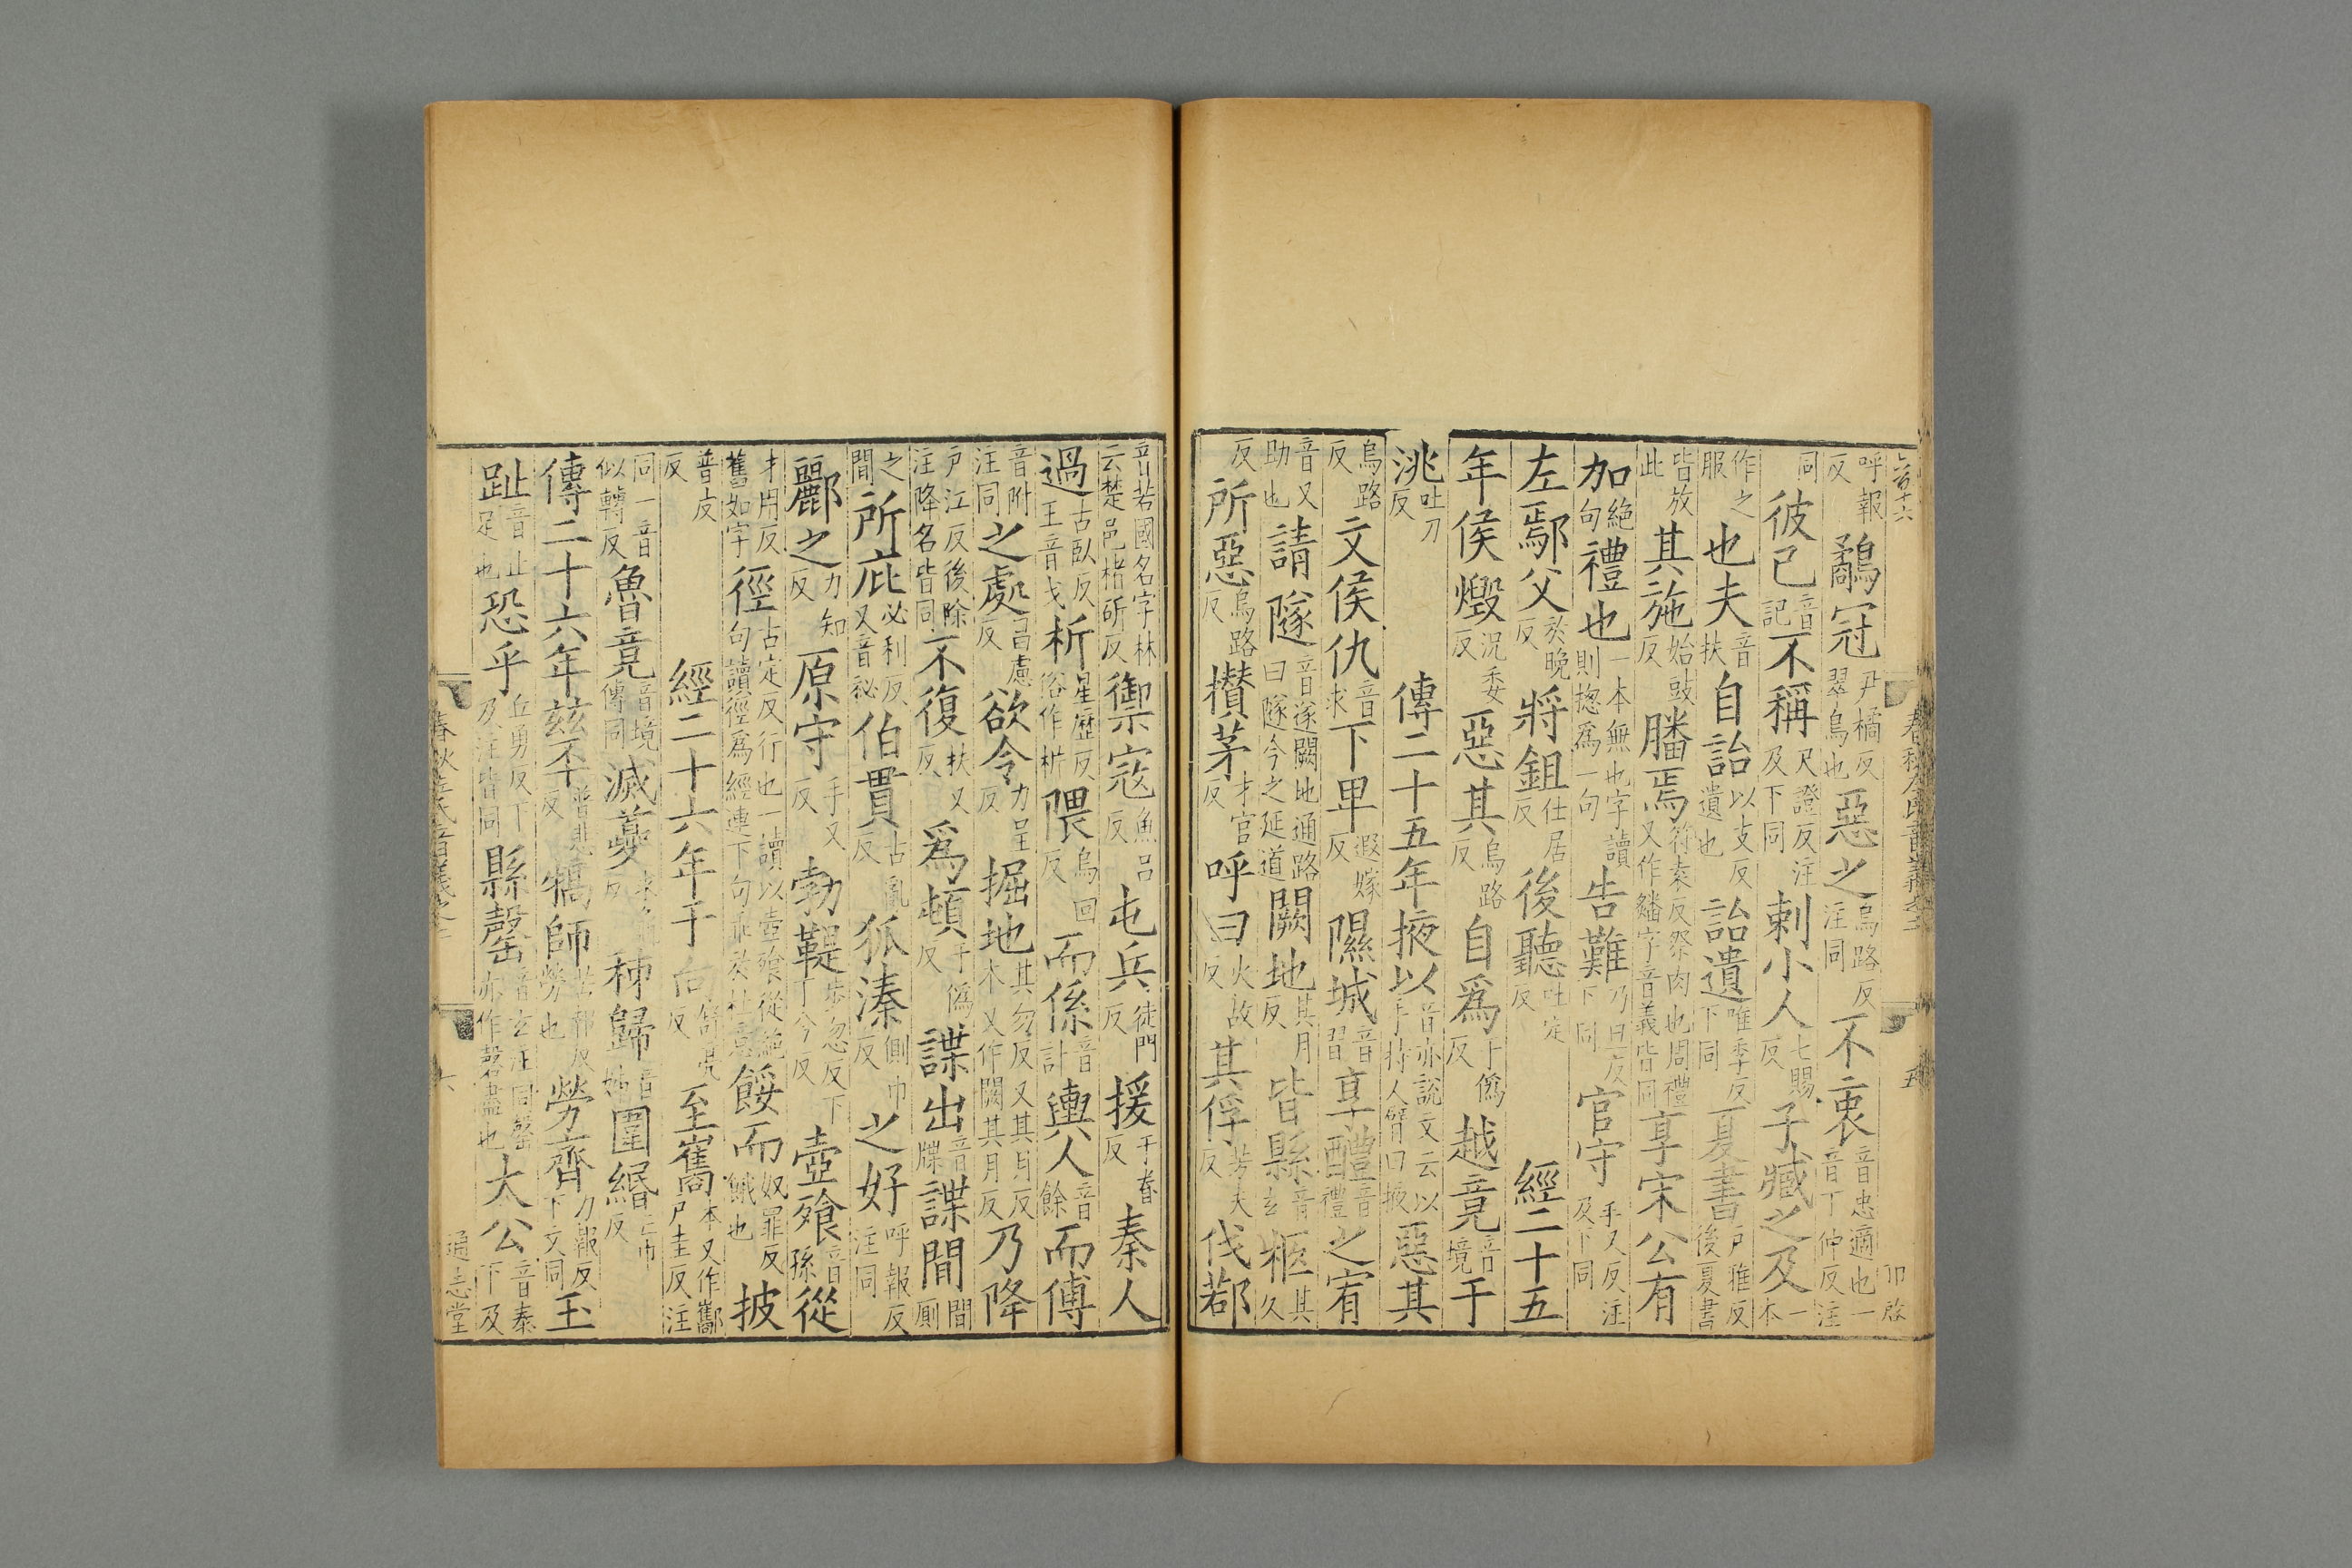 呼報反鷸冠尹橘反翠鳥也惡之烏路反注同不衷音忠適也一音丁仲反注
同彼己音記不稱尺證反注及下同刺小人七賜反子臧之及一本
作之服也夫音扶自詒以支反遺也詒遺唯季反下同夏書戶雅反後夏書
皆放此其施始豉反膰焉符袁反祭肉也周禮又作䊩字音義皆同享宋公有
加絕句禮也一本無也字讀則揔爲一句告難乃旦反下同官守手又反注及下同
左鄢父於晚反將鉏仕居反後聽吐定反經二十五
年侯燬況委反惡其烏路反自爲于僞反越竟音境于
洮吐刀反傳二十五年掖以音亦說文云以手持人臂曰掖惡其
烏路反文侯仇音求下卑遐嫁反隰城音習享醴音禮之宥
音又助也請隧音遂闕地通路曰隧今之延道闕地其月反皆縣音玄柩其久
反所惡烏路反攢茅才官反呼曰火故反其俘芳夫反伐鄀
音若國名字林云楚邑楮斫反禦寇魚呂反屯兵徒門反援于眷反秦人
過古臥反王音戈析星歷反俗作枂隈烏回反而係音計輿人音餘而傅
音附注同之處昌慮反欲令力呈反掘地其勿反又其月反本又作闕其月反乃降
戶江反後除注降名皆同不復扶又反爲頓于僞反諜出音牒諜間間廁
之間所庇必利反又音祕伯貫古亂反狐溱側巾反之好呼報反注同
酈之力知反原守手又反勃鞮步忽反下丁今反壺飱音孫從
才用反舊如字徑古定反行也一讀以壺飱從絕句讀徑爲經連下句乖於杜意餒而奴罪反餓也披
普皮反經二十六年于向舒亮反至巂本又作酅戶圭反注
同一音似轉反魯竟音境傳同滅夔求龜反秭歸音姊圍緡亡巾反
傳二十六年茲丕普悲反犒師苦報反勞也勞齊力報反下文同玉
趾音止足也恐乎丘勇反下及注皆同縣罄音玄注同罄亦作磬盡也大公音泰下及
春秋左氏音義之一
五
春秋左氏音義之一
六
通志堂